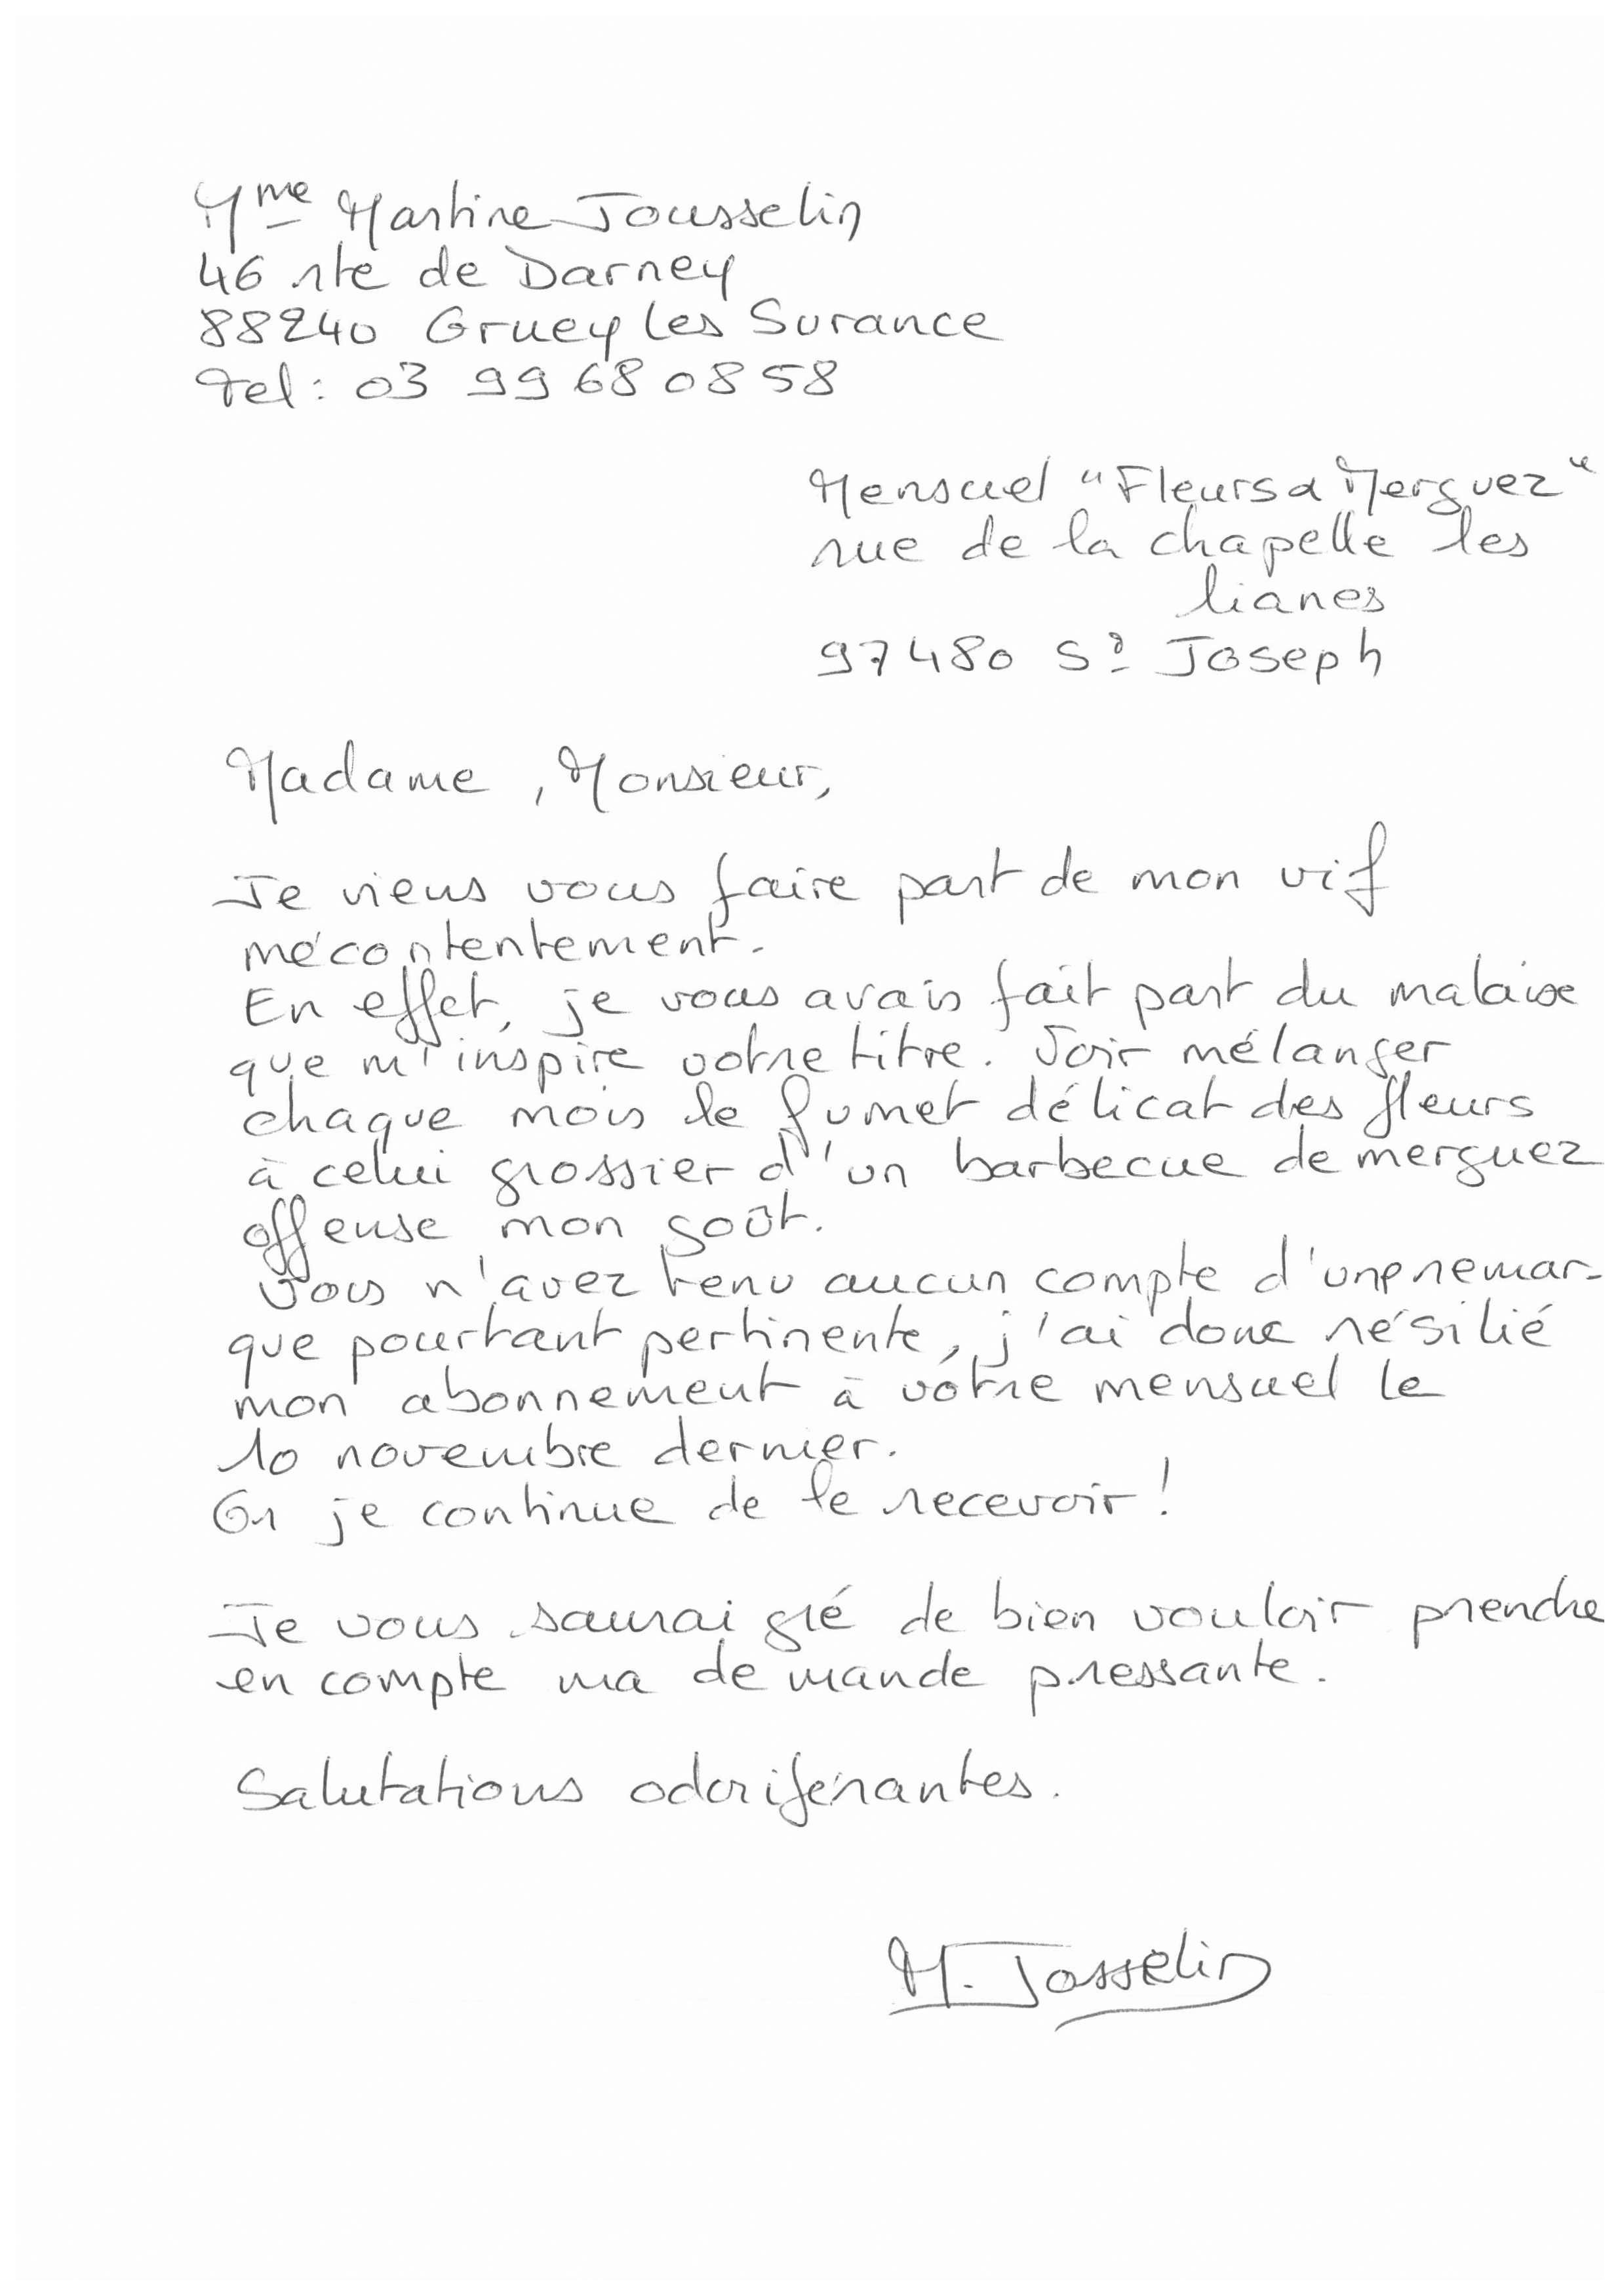 Mme Martine Jousselin
46 rte de Darney
88240 Gruey les Surance
Tel : 03 99 68 08 58
Mensuel "Fleurs & Merguez"
rue de la chapelle les
lianes
97480 St Joseph
Madame, Monsieur,
Je viens vous faire part de mon vif
mécontentement.
En effet, je vous avais fait part du malaise
que m'inspire votre titre. Voir mélanger
chaque mois le fumet délicat des fleurs
à celui grossier d'un barbecue de merguez
offense mon goût.
Vous n'avez tenu aucun compte d'une remar-
que pourtant pertinente, j'ai donc résilié
mon abonnement à votre mensuel le
10 novembre dernier.
Or je continue de le recevoir !
Je vous saurai gré de bien vouloir prendre
en compte ma demande pressante.
Salutations odoriférantes.
M. Josselin